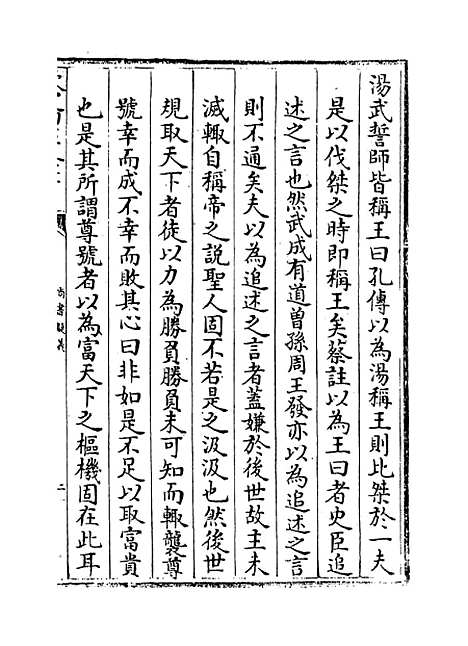 湯武誓師皆稱王曰孔傳以為湯稱王則比桀於一夫
是以伐桀之時即稱王矣蔡註以為王曰者史臣追
述之言也然武成有道曾孫周王發亦以為追述之言
則不通矣夫以為追述之言者蓋嫌於後世故主未
滅輙自稱帝之說聖人固不若是之汲汲也然後世
規取天下者徒以力為勝負勝負未可知而輙襲尊
號幸而成不幸而敗其心曰非如是不足以取富貴
也是其所謂尊號者以為富天下之樞機固在此耳
尚書疑義
二